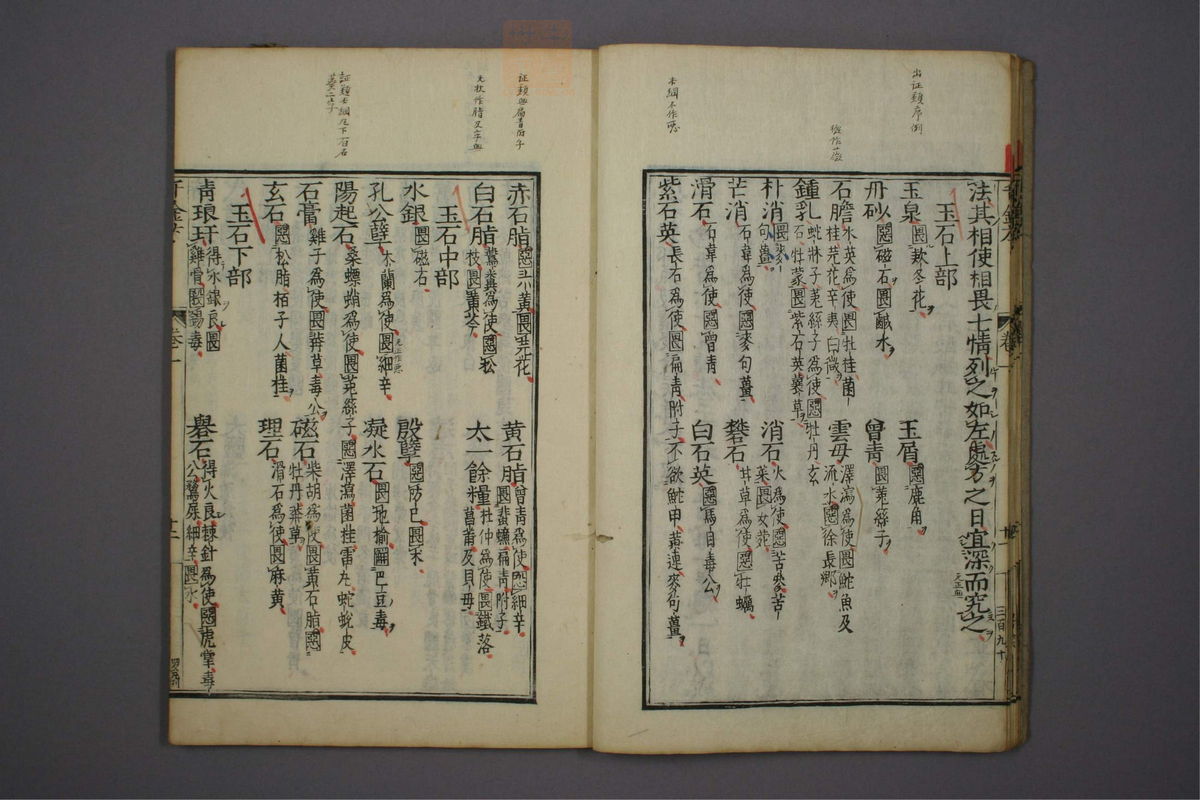 法其相使相畏七情列之如左處方之日宜深而究之
玉石上部
玉泉畏欵冬花
玉屑惡鹿角
丹砂惡磁石畏鹹水
曾青畏菟絲子
石膽水英為使畏牡桂菌桂芫花辛夷白薇
雲母澤瀉為使畏鮀魚及流水惡徐長卿
鍾乳蛇牀子菟絲子為使惡牡丹玄石牡蒙畏紫石英蘘草
朴消畏麥句薑
消石火為使惡苦參苦菜畏女菀
芒消石韋為使惡麥句薑
礬石甘草為使惡牡蠣
滑石石韋為使惡曾青
白石英惡馬目毒公
紫石英長石為使畏扁青附子不欲鮀甲黃連麥句薑
赤石脂惡大黃畏芫花
黃石脂曾青為使惡細辛畏蜚蠊扁青附子
白石脂鷰糞為使惡松枝畏黃芩
太一餘糧杜仲為使畏鐵落菖蒲及貝母
玉石中部
水銀畏磁石
殷孽惡防已畏朮
孔公孽木蘭為使畏細辛
凝水石畏地榆解巴豆毒
陽起石桑螵蛸為使畏菟絲子惡澤瀉菌桂雷丸蛇蛻皮
石膏雞子為使畏莽草毒公
磁石柴胡為使畏黃石脂惡牡丹莽草
玄石惡松脂栢子人菌桂
理石滑石為使畏麻黃
玉石下部
靑琅玕得水銀良畏雞骨殺錫毒
礜石得火良棘針為使惡虎掌毒公鶩屎細辛畏水
卷一
十二
卷一
三百九十
出証類序例
本綱不作惡